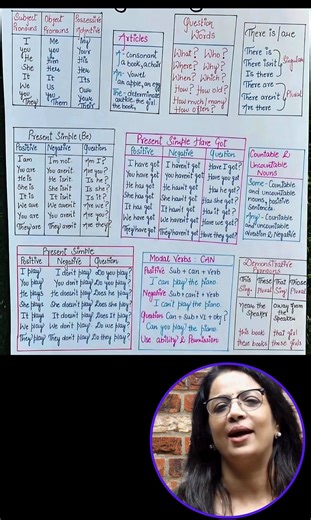 Subject Pronouns
Object Pronouns
Possessive Adjective
I Me My
You You Your
He Him His
She Her Her
It It Its
We Us Our
You You Your
They Them Their
Articles
A - Consonant
a book, a chair
An - Vowel
an apple, an egg
The - determinate
the girl
the book,
Question Words
What? Who?
Where? Why?
When? Which?
How? How old?
How much/many
How often?
There is/are
There is
There isn't
Is there
Singular
There are
There aren't
Are there
Plural
Present Simple (Be)
Positive Negative Question
I am I'm not. Am I?
You are You aren't. Are you?
He is He isn't. Is he?
She is She isn't. Is she?
It is It isn't. Is it?
We are We aren't. Are we?
You are You aren't. Are you?
They are They aren't. Are they?
Present Simple Have Got
Positive Negative Question
I have got I haven't got Have I got?
You have got You haven't got Have you got?
He has got He hasn't got Has he got?
She has got She hasn't got Has she got?
It has got It hasn't got Has it got?
We have got We haven't got Have we got?
They have got They haven't got Have they got?
Countable & Uncountable Nouns
Some - Countable and Uncountable nouns, positive Sentences.
Any - Countable and uncountable
Question & Negative
Present Simple
Positive Negative Question
I play I don't play Do I play?
You play You don't play Do you play?
He plays He doesn't play Does he play?
She plays She doesn't play Does she play?
It plays It doesn't play Does it play?
We play We don't play Do we play?
They play They don't play Do they play?
Modal Verbs CAN
Positive Sub + can + Verb
I can play the piano.
Negative Sub + can't + Verb
I can't play the piano.
Question Can + Sub + V1 + obj?
Can you play the piano?
Use ability & Permission
Demonstrative Pronouns
This These That Those
Sing. Plural Sing. Plural
Near the speaker
away from the speaker
this book that girl
these books those girls